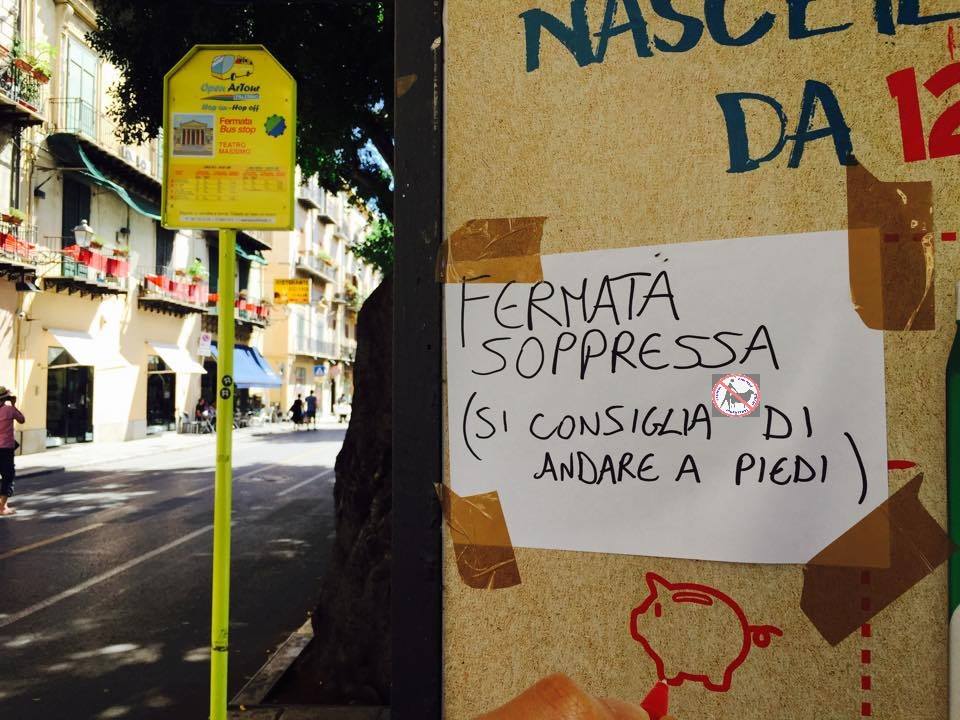 Open ArTour
Hop on-Hop off
Fermata
Bus stop
TEATRO
MASSIMO
RISTORANTE
DA 12
FERMATA
SOPPRESSA
(SI CONSIGLIA DI
ANDARE A PIEDI)